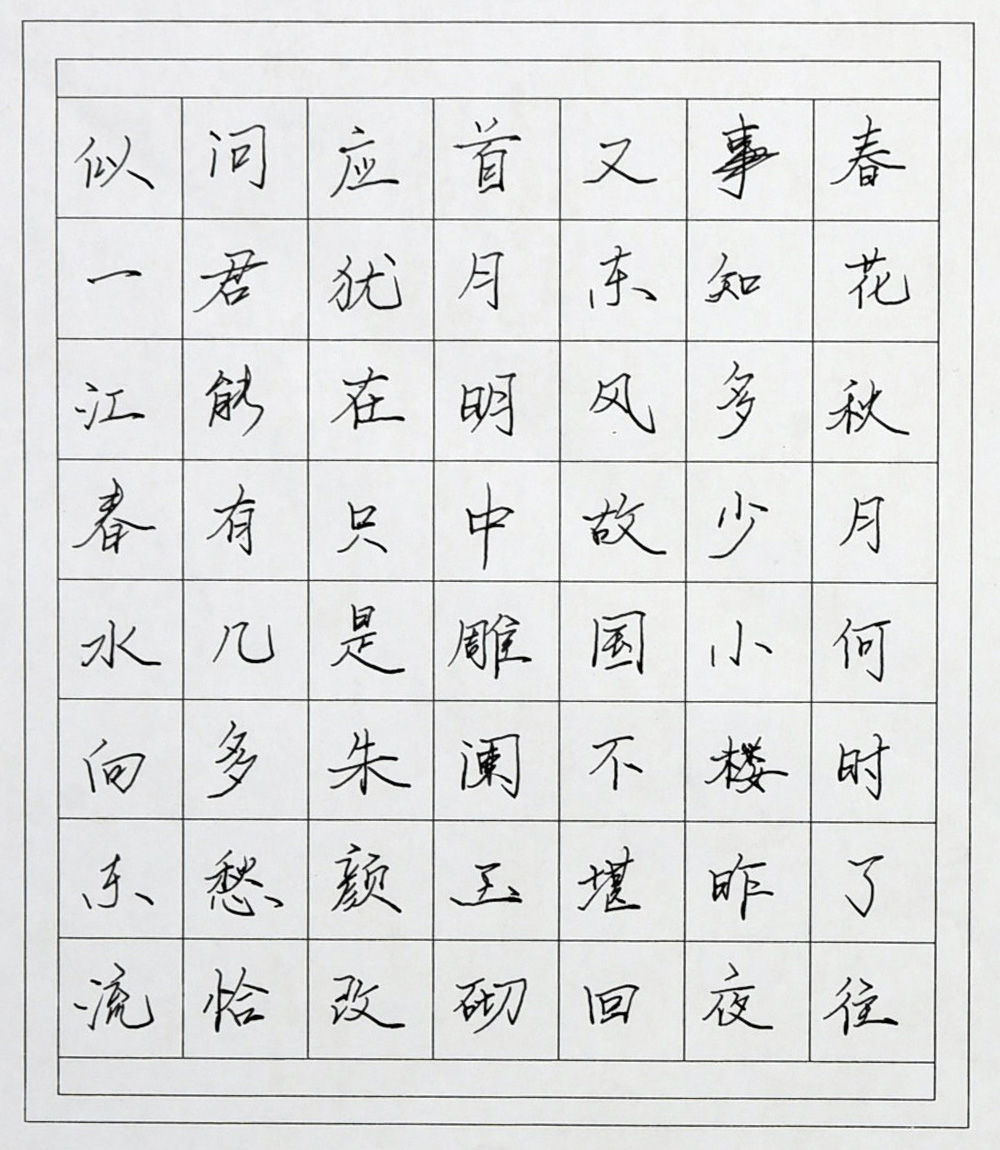 春花秋月何时了往
事知多少小楼昨夜
又东风故国不堪回
首月明中雕澜玉砌
应犹在只是朱颜改
问君能有几多愁恰
似一江春水向东流